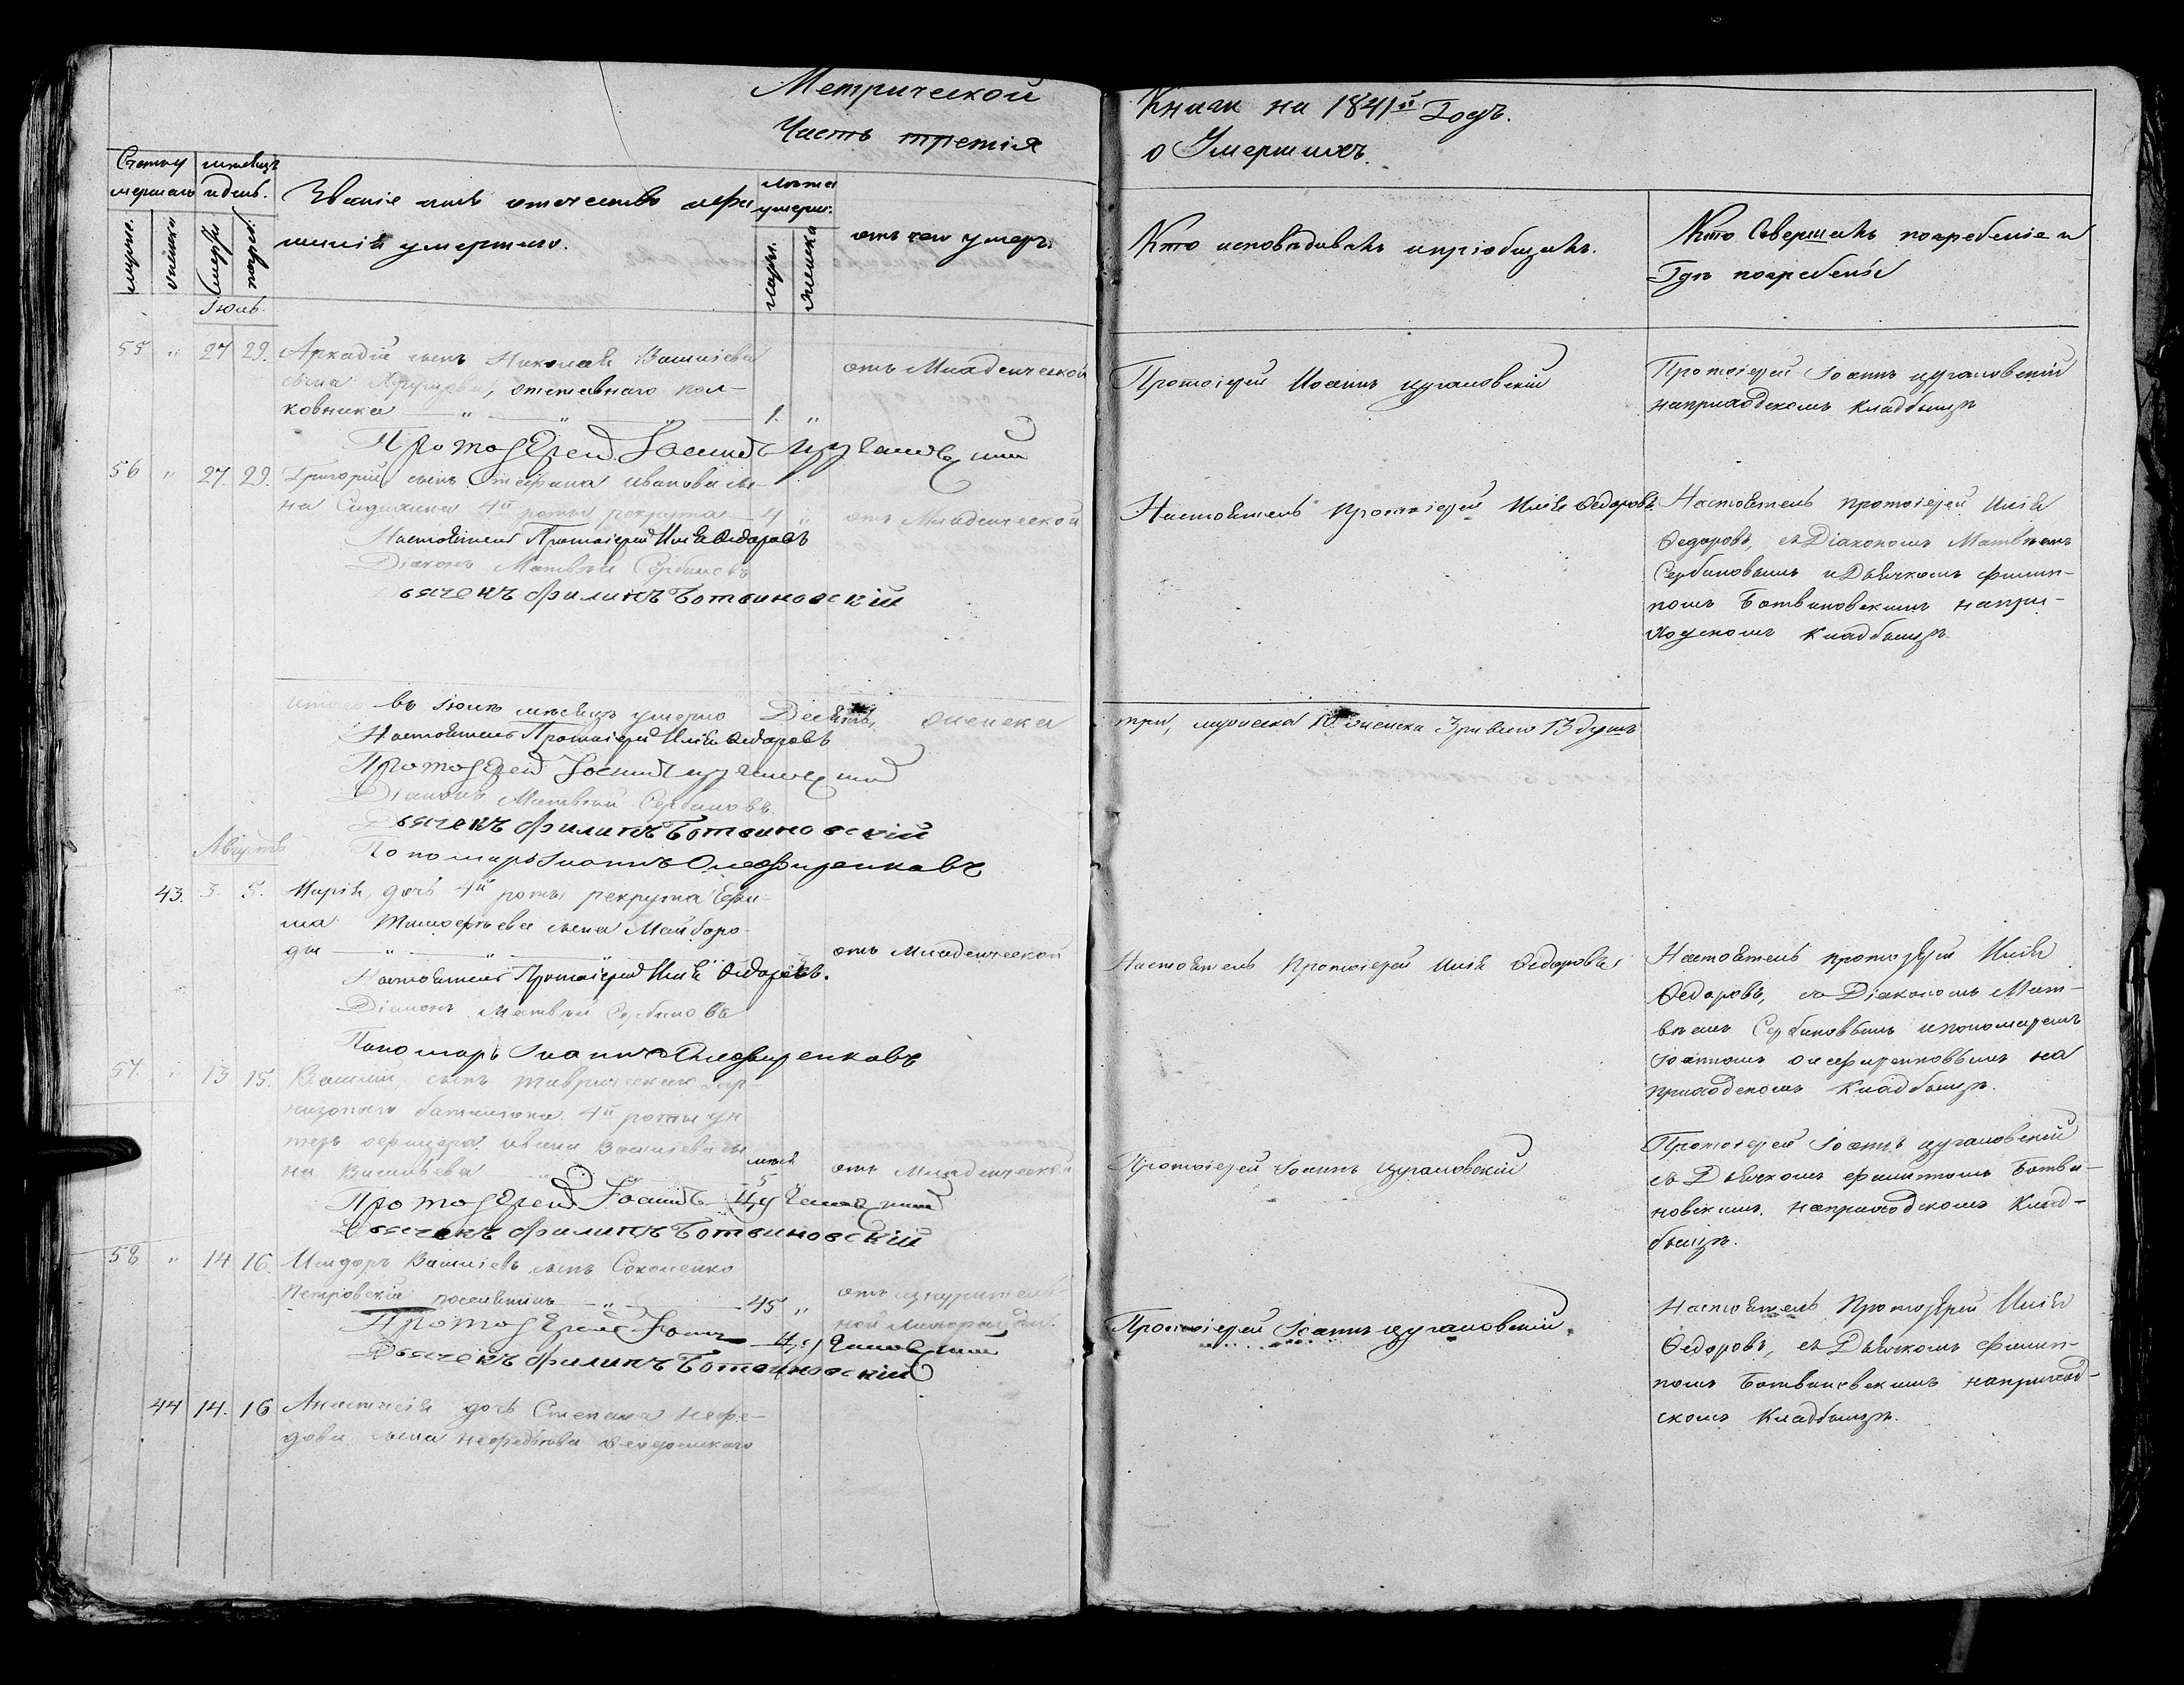 Метрической
Часть третія
Книги на 1841й Годъ.
о Умершихъ.
Счетъ умершаго
мѣсяцъ и день.
Званіе имя отчество и фамилія умершаго.
лѣта умерш.
отъ чего умеръ.
Кто исповѣдывалъ и пріобщалъ.
Кто Совершалъ погребеніе и
Гдѣ погребены
мужеск.
женска
смерти
погреб.
муж.
женска
Іюль.
55 " 27 29. Аркадій сынъ Николая Василіева
сына, отставнаго пол-
ковника — " — 1. "
отъ Младенческой
Протоіерей Иоаннъ Цугановскій
Протоіерей Іоаннъ Цугановскій
на приходскомъ кладбищѣ
Протоіерей Іоаннъ Цугановскій
56 " 27. 29. Григорій сынъ Стефана Иванова сы-
на 4й роты рекрута — 4 " отъ Младенческой
Настоятель Протоіерей Илія Ѳедоровъ
Діаконъ Матвѣй Сербиновъ
Дьячекъ Филипъ Ботвиновскій
Настоятель Протоіерей Илія Ѳедоровъ
Настоятель протоіерей Илія
Ѳедоровъ, съ Діакономъ Матвѣемъ
Сербиновымъ и Дьячкомъ Филип-
помъ Ботвиновскимъ на при-
ходскомъ кладбищѣ.
итого въ Іюлѣ мѣсяцѣ умерло Десять, женска
три, мужеска 10 женска 3 и всего 13 душъ
Настоятель Протоіерей Илія Ѳедоровъ
Протоіерей Іоаннъ Цугановскій
Діаконъ Матвѣй Сербиновъ
Дьячекъ Филипъ Ботвиновскій
Пономарь Іоаннъ Олефиренковъ
Августъ
43. 3. 5. Марія, дочь 4й роты рекрута Ефи-
ма Тимофѣева сына Майборо-
ды — " — отъ Младенческой
Настоятель Протоіерей Илія Ѳедоровъ.
Діаконъ Матвѣй Сербиновъ
Пономарь Іоаннъ Олефиренковъ
Настоятель Протоіерей Илія Ѳедоровъ
Настоятель протоіерей Илія
Ѳедоровъ, съ Діакономъ Мат-
вѣемъ Сербиновымъ и пономаремъ
Іоанномъ Олефиренковымъ на
приходскомъ Кладбищѣ.
57. " 13 15. Василій, сынъ таврическаго Гар-
низоннаго баталіона 4й роты ун-
теръ офицера Ивана Василіева сы-
на Васильева 5 отъ Младенческой
Протоіерей Іоаннъ Цугановскій
Дьячекъ Филипъ Ботвиновскій
Протоіерей Іоаннъ Цугановскій
Протоіерей Іоаннъ Цугановскій
съ Дьячкомъ Филиппомъ Ботви-
новскимъ, на приходскомъ Клад-
бищѣ.
58 " 14 16. Исидоръ Василіевъ сынъ Соколенко
Петровскій поселянинъ — " — 45 " отъ изнурител-
ной лихорадки.
Протоіерей Іоаннъ Цугановскій
Дьячекъ Филипъ Ботвиновскій
Протоіерей Іоаннъ Цугановскій.
Настоятель Протоіерей Илія
Ѳедоровъ, съ Дьячкомъ Филип-
помъ Ботвиновскимъ на приход-
скомъ Кладбищѣ.
44 14. 16 Анастасія дочь Степана Нефе-
дова сына Нефедьева